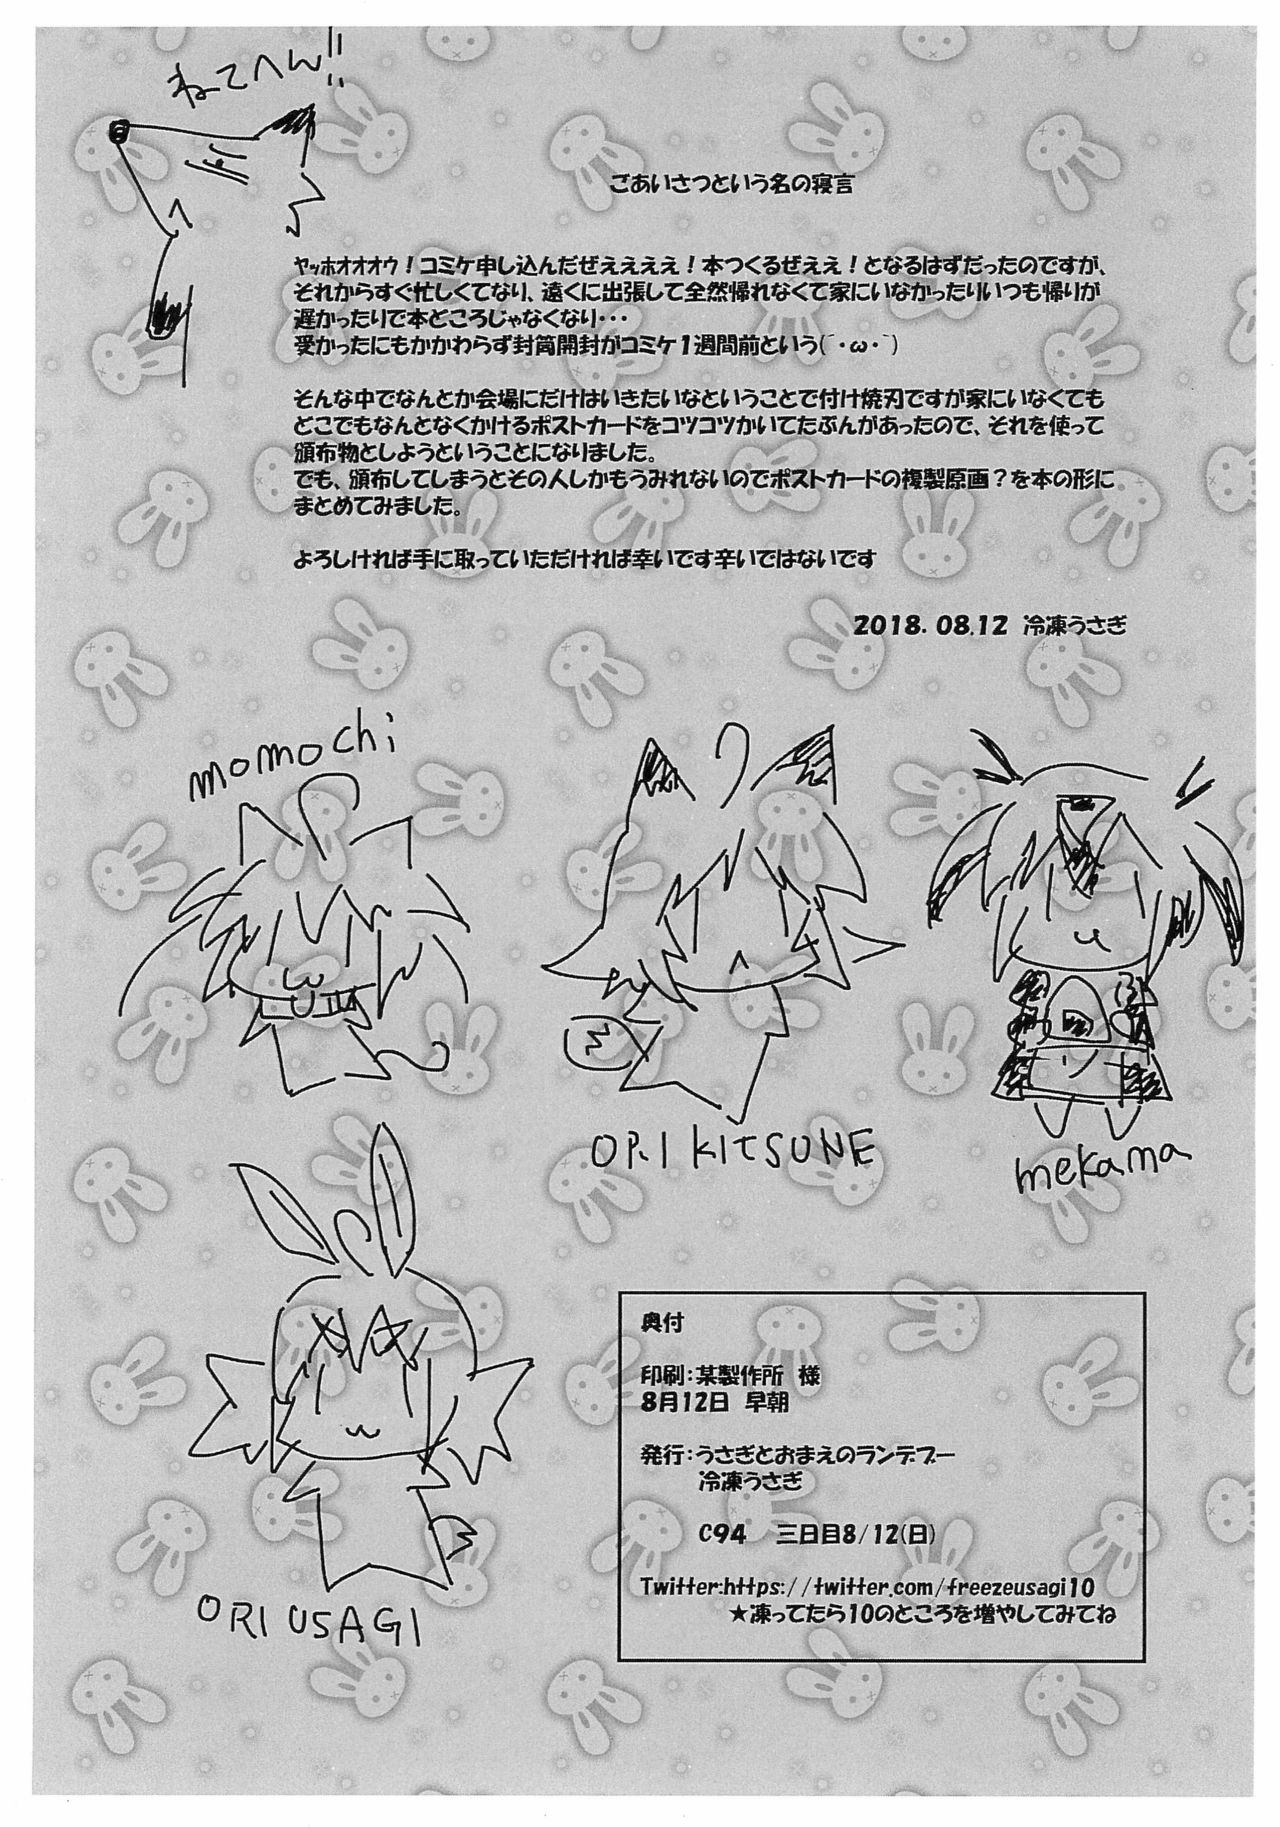 ねてへん!!
ごあいさつという名の寝言
ヤッホオオオウ！コミケ申し込んだぜええええ！本つくるぜええ！となるはずだったのですが、
それからすぐ忙しくてなり、遠くに出張して全然帰れなくて家にいなかったりいつも帰りが
遅かったりで本どころじゃなくなり・・・
受かったにもかかわらず封筒開封がコミケ１週間前という(´・ω・`)
そんな中でなんとか会場にだけはいきたいなということで付け焼刃ですが家にいなくても
どこでもなんとなくかけるポストカードをコツコツかいてたぶんがあったので、それを使って
頒布物としようということになりました。
でも、頒布してしまうとその人しかもうみれないのでポストカードの複製原画？を本の形に
まとめてみました。
よろしければ手に取っていただければ幸いです辛いではないです
2018.08.12 冷凍うさぎ
momochi
ORI KITSUNE
mekama
ORI USAGI
奥付
印刷：某製作所 様
8月12日 早朝
発行：うさぎとおまえのランデブー
冷凍うさぎ
C94 三日目8/12(日)
Twitter:https://twitter.com/freezeusagi10
★凍ってたら10のところを増やしてみてね